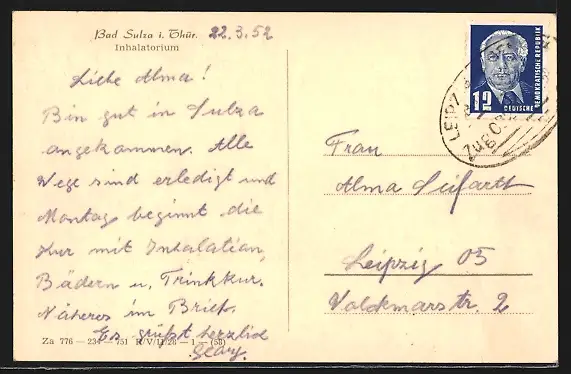 Bad Sulza i. Thür. 22.3.52
Inhalatorium
Liebe Alma!
Bin gut in Sulza
angekommen. Alle
Wege sind erledigt und
Montag beginnt die
Kur mit Inhalation,
Bädern u. Trinkkur.
Näheres im Brief.
Es grüßt herzlich
Georg.
Za 776 — 234 — 751 R/V/11/26 — 1 — (58)
12
DEUTSCHE
DEMOKRATISCHE REPUBLIK
LEIPZ
Zug
Frau
Alma Seifarth
Leipzig O5
Voldkmarstr. 2